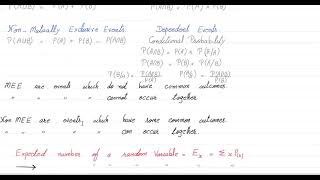 P(AUB) = P(A) + P(B) P(A∩B) = P(A) × P(B)
Non-Mutually Exclusive Events: Dependent Events
P(AUB) = P(A) + P(B) - P(A∩B) Conditional Probability
P(A∩B) = P(A) × P(B/A)
P(A∩B) = P(B) × P(A/B)
P(B/A) = P(A∩B)/P(A) P(A/B) = P(A∩B)/P(B)
MEE are events which do not have common outcomes.
" " " " cannot occur together.
Non MEE are events, which have some common outcomes.
" " " " " can occur together.
Expected number of a random Variable = Ex = Σ x P(x)